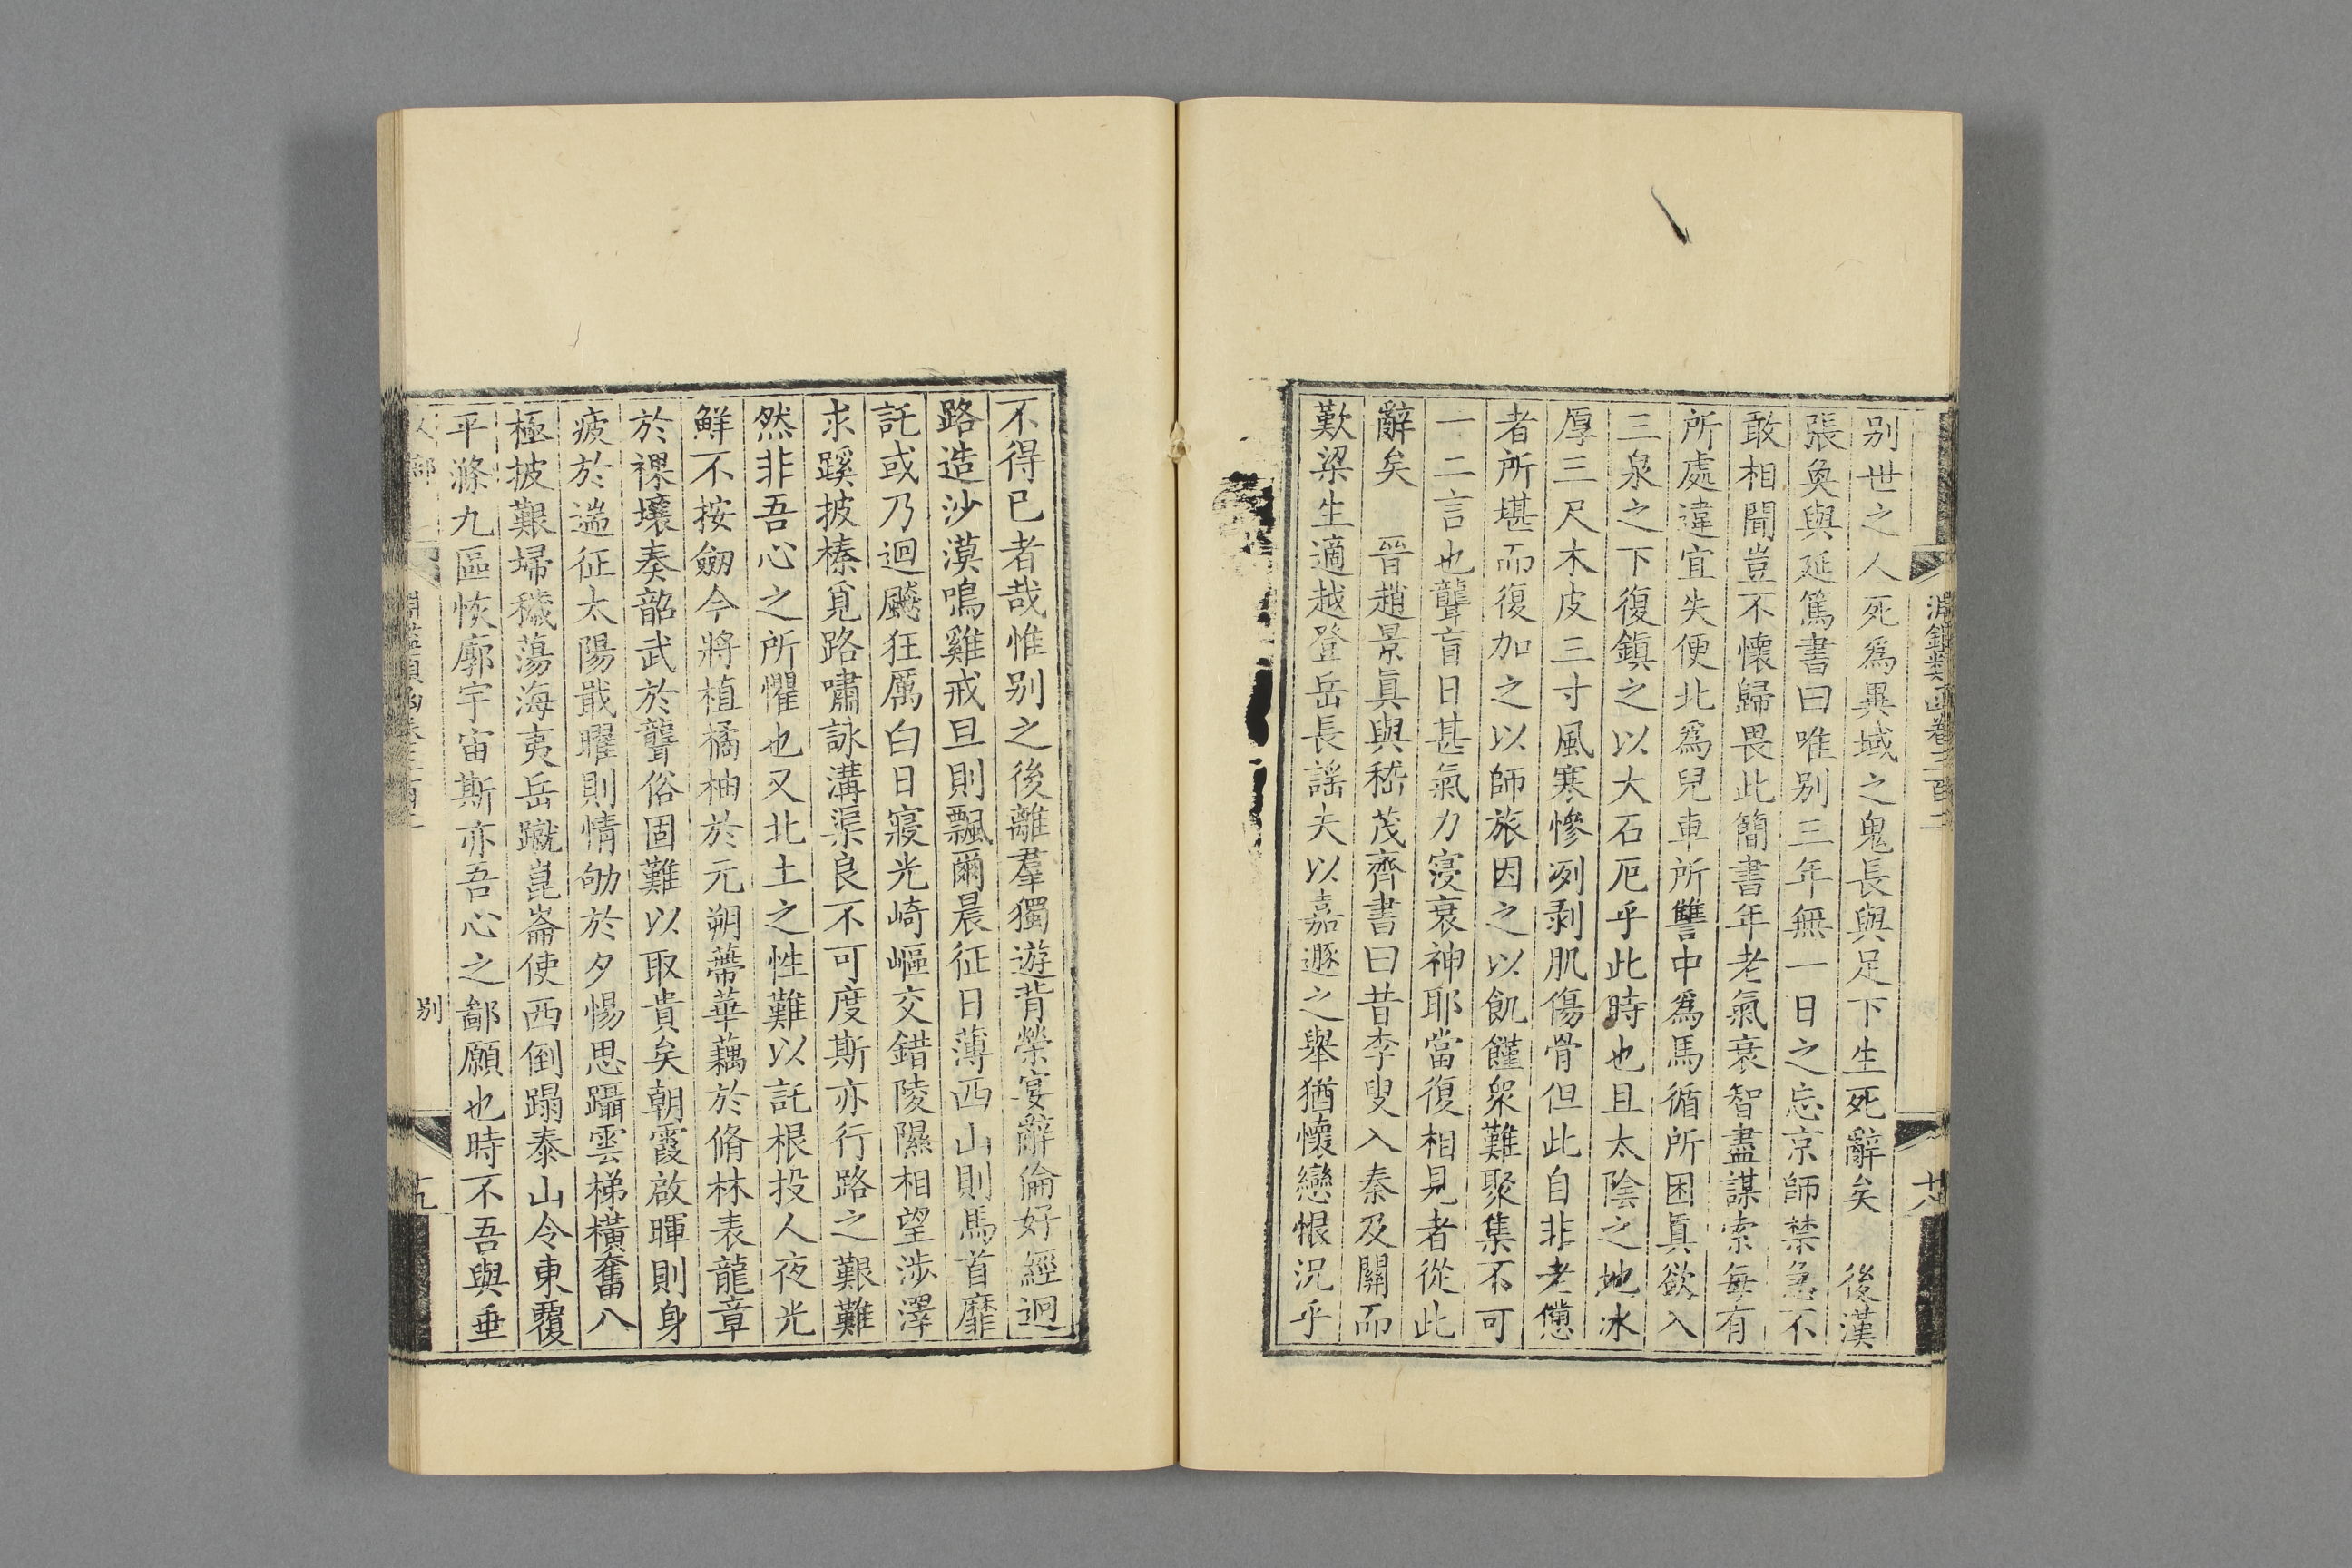 淵鑑類函卷三百二
十八
别世之人死爲異域之鬼長與足下生死辭矣 後漢
張奐與延篤書曰唯别三年無一日之忘京師禁急不
敢相聞豈不懷歸畏此簡書年老氣衰智盡謀索每有
所處違宜失便北爲兒車所讐中爲馬循所困眞欲入
三泉之下復鎭之以大石厄乎此時也且太陰之地冰
厚三尺木皮三寸風寒慘冽剥肌傷骨但此自非老憊
者所堪而復加之以師旅因之以飢饉衆難聚集不可
一二言也聾盲日甚氣力寖衰神耶當復相見者從此
辭矣 晉趙景眞與嵇茂齊書曰昔李叟入秦及關而
歎梁生適越登岳長謡夫以嘉遯之舉猶懷戀恨况乎
不得已者哉惟别之後離羣獨遊背榮宴辭倫好經迥
路造沙漠鳴雞戒旦則飄爾晨征日薄西山則馬首靡
託或乃迴飈狂厲白日寢光崎嶇交錯陵隰相望涉澤
求蹊披榛覓路嘯詠溝渠良不可度斯亦行路之艱難
然非吾心之所懼也又北土之性難以託根投人夜光
鮮不按劒今將植橘柚於元朔蔕華藕於脩林表龍章
於裸壤奏韶武於聾俗固難以取貴矣朝霞啟暉則身
疲於遄征太陽戢曜則情劬於夕惕思躡雲梯橫奮八
極披艱埽穢蕩海夷岳蹴崑崙使西倒蹋泰山令東覆
平滌九區恢廓宇宙斯亦吾心之鄙願也時不吾與垂
别